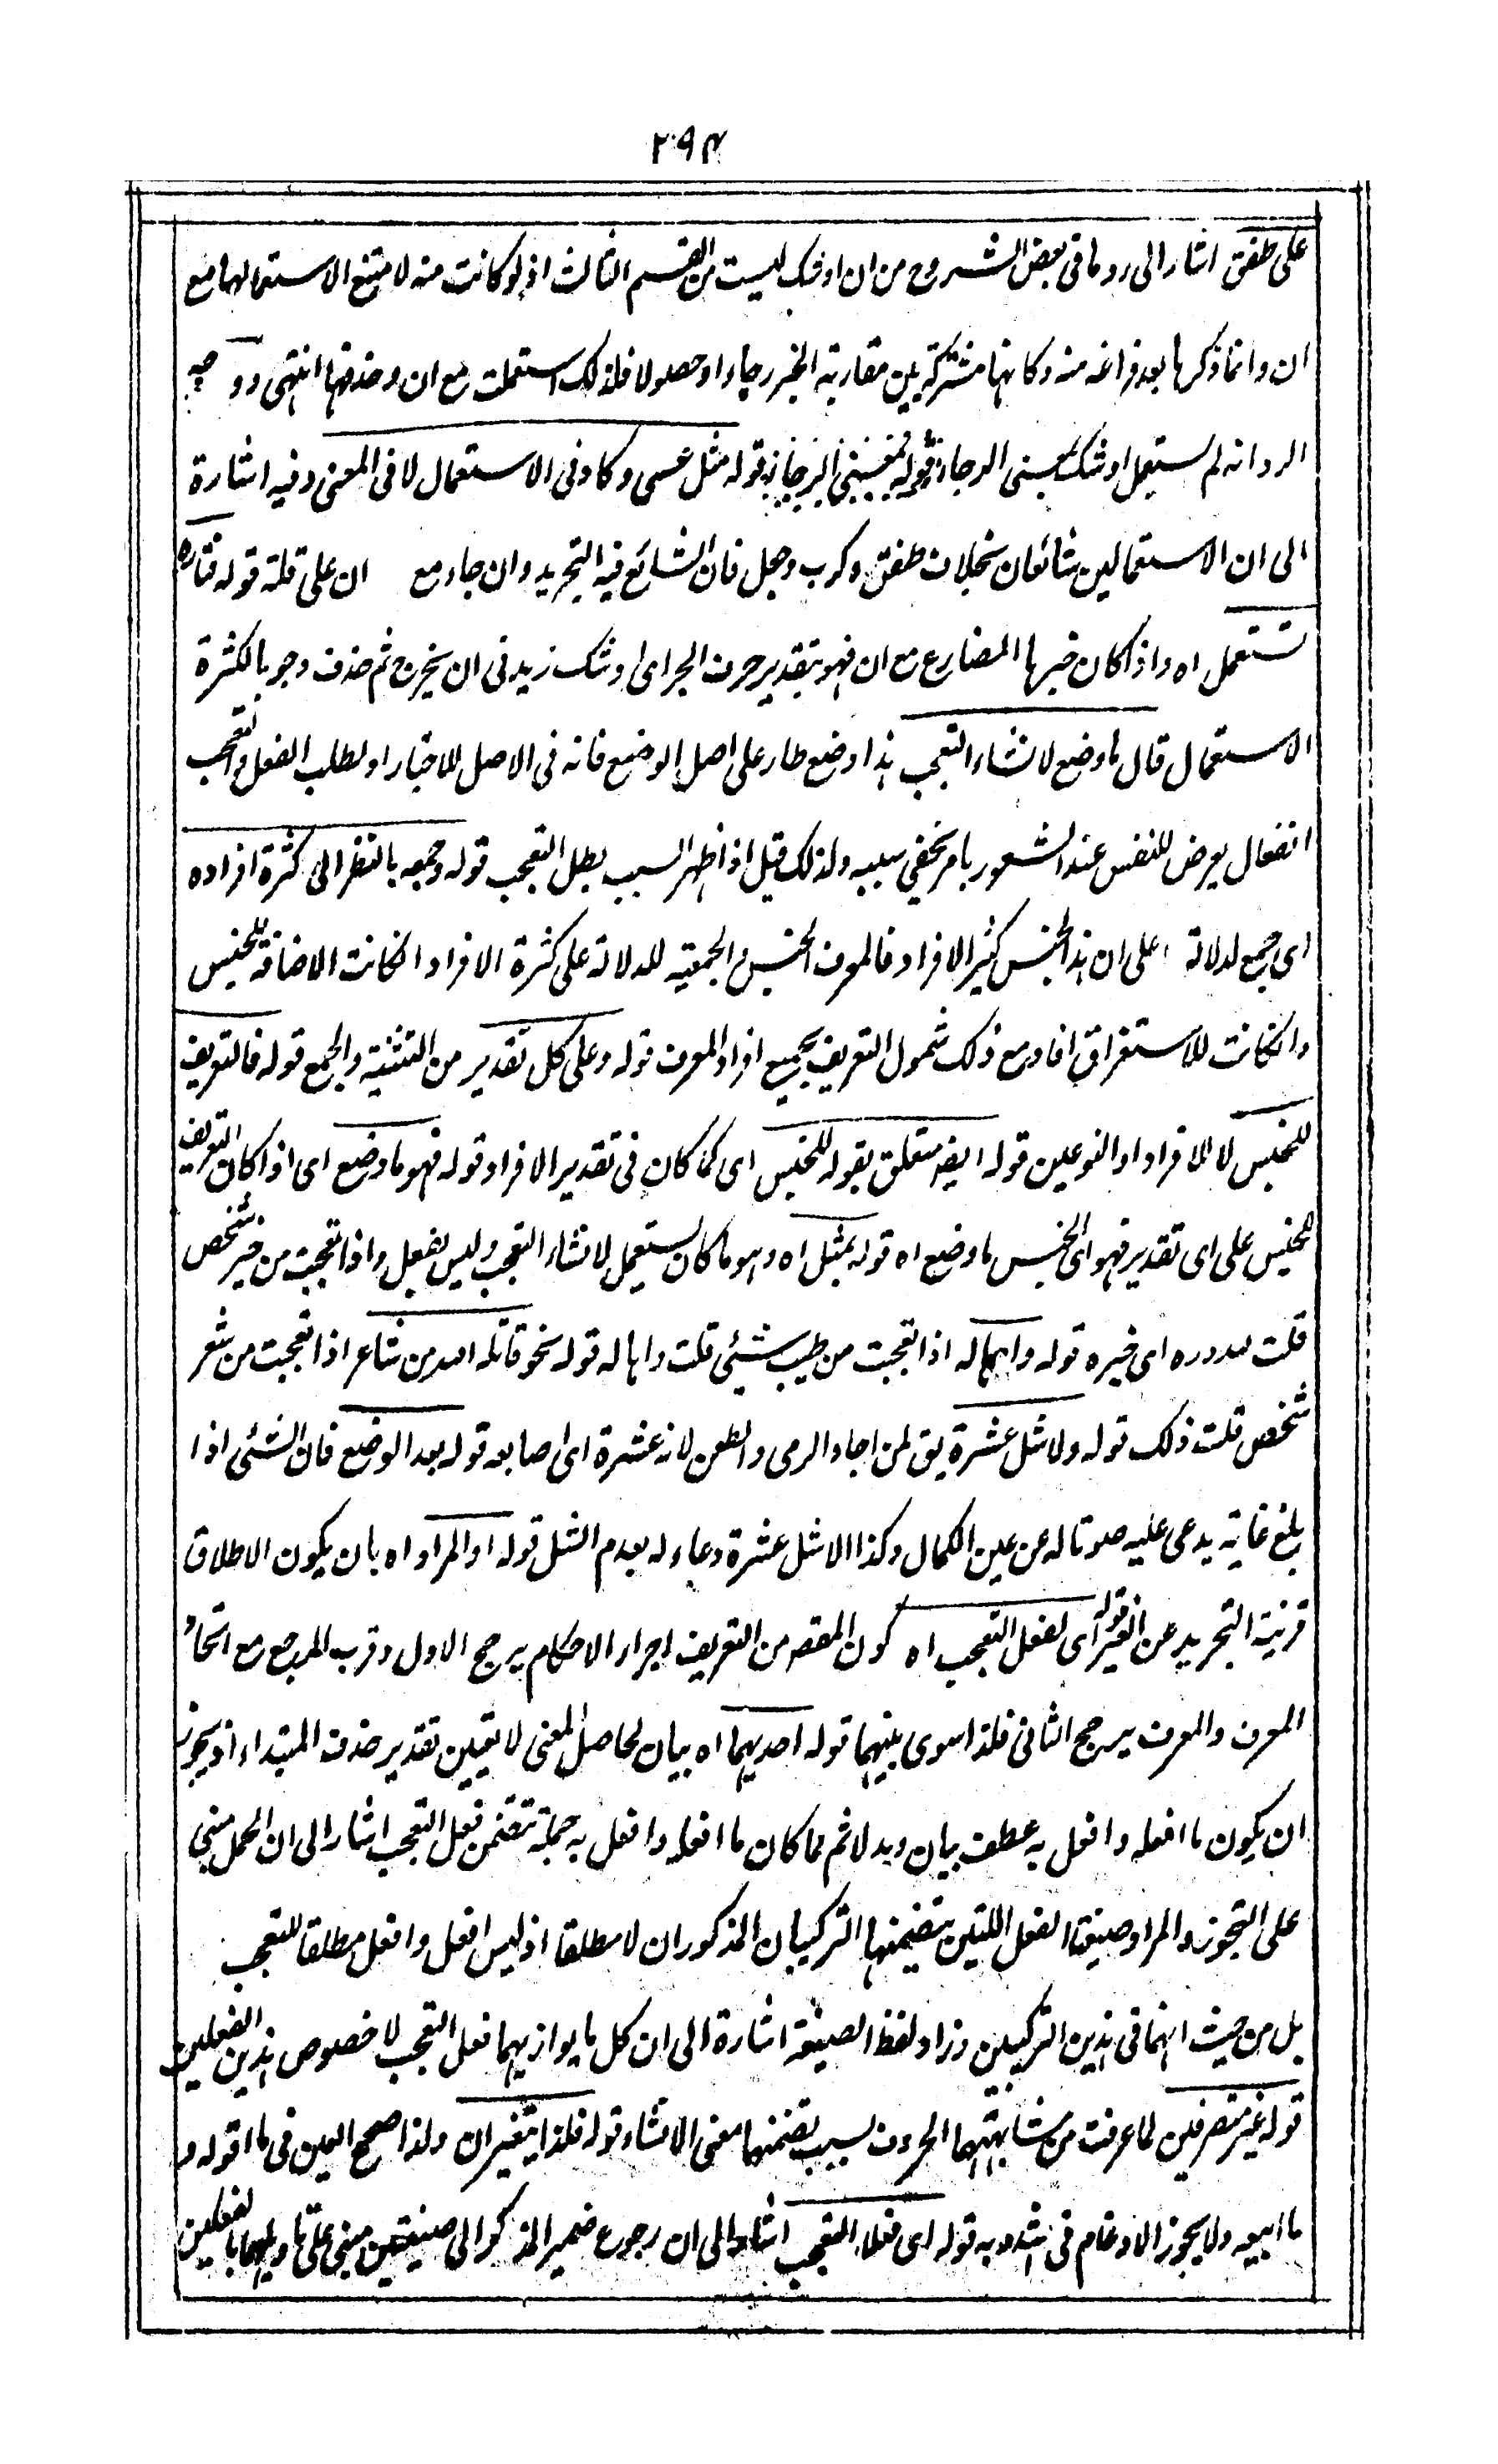 ٢٩٤
على طفق اشار الى رد ما فى بعض الشروح من ان اوشك ليست من القسم الثالث اذ لو كانت منه لامتنع الاستعمالها مع
ان وانما ذكرها بعد فراغه منه وكانها مشتركة بين مقاربة الخبر رجاء او حصولا فلذلك استعملت مع ان وحذفها انتهى ووجه
الرد انه لم يستعمل اوشك بمعنى الرجاء قوله مثل عسى وكاد فى الاستعمال لا فى المعنى وفيه اشارة
الى ان الاستعمالين شائعان بخلاف طفق وكرب وجعل فان الشائع فيه التجريد وان جاء مع ان على قلة قوله فتارة
تستعمل اه واذا كان خبرها المضارع مع ان فهو بتقدير حرف الجر اى اوشك زيد فى ان يخرج ثم حذف وجوبا لكثرة
الاستعمال قال ما وضع لانشاء التعجب هذا وضع طار على اصل الوضع فانه فى الاصل للاخبار او لطلب الفعل والتعجب
انفعال يعرض للنفس عند الشعور بامر يخفى سببه ولذلك قيل اذا ظهر السبب بطل التعجب قوله وجمعه بالنظر الى كثرة افراده
اى جمع لدلالة على ان هذا الجنس كثير الافراد فالمعرف الجنس والجمعية للدلالة على كثرة الافراد انكانت الاضافة للجنس
وانكانت للاستغراق افاد مع ذلك شمول التعريف بجميع افراد المعرف قوله وعلى كل تقدير من التثنية والجمع قوله فالتعريف
للجنس لا للافراد او النوعين قوله ايضه متعلق بقوله للجنس اى كما كان فى تقدير الافراد قوله فهو ما وضع اى اذا كان التعريف
للجنس على اى تقدير فهو اى الجنس ما وضع اه قوله بمثل اه وهو ما كان يستعمل لانشاء التعجب وليس بفعل واذا تعجبت من خير شخص
قلت لله دره اى خيره قوله واها له اذا تعجبت من طيب شيئى قلت واها له قوله نحو قاتله الله من شاعر اذا تعجبت من شعر
شخص قلت ذلك قوله ولا شل عشرة يق لمن اجاد الرمى والطعن لانه عشرة اى اصابعه قوله بعد الوضع فان الشئى اذا
بلغ غايته يدعى عليه صوتا له عن عين الكمال وكذا الا شل عشرة دعاء له بعدم الشل قوله او المراد اه بان يكون الاطلاق
قرينة التجريد عن الغير قوله اى لفعل التعجب اه كون المقصه من التعريف اجراء الاحكام يرجح الاول وقرب المرجع مع اتحاد
المعرف والمعرف يرجح الثانى فلذا سوى بينهما قوله احديهما اه بيان لحاصل المعنى لا يتعين تقدير حذف المبتداء اذ يجوز
ان يكون ما افعله وافعل به عطف بيان وبدلا ثم لما كان ما افعله وافعل به جملة تتضمن فعل التعجب اشار الى ان الحمل مبنى
على التجوز والمراد صيغتا الفعل اللتين يتضمنها التركيبان المذكوران لا مطلقا اذ ليس افعل وافعل مطلقا للتعجب
بل من حيث انهما فى هذين التركيبين وزاد لفظ الصيغة اشارة الى ان كل ما يوازيهما فعل التعجب لا خصوص هذين الفعلين
قوله غير متصرفين لما عرفت من مشابهتهما الحروف بسبب تضمنهما معنى الانشاء قوله فلذا يتغيران ولذا صحح العين فى ما اقوله و
ما ابيعه ولا يجوز الادغام فى اشدد به قوله اى فعلا التعجب اشار الى ان رجوع ضمير المذكور الى صيغتين مبنى على تاويلهما بالفعلين